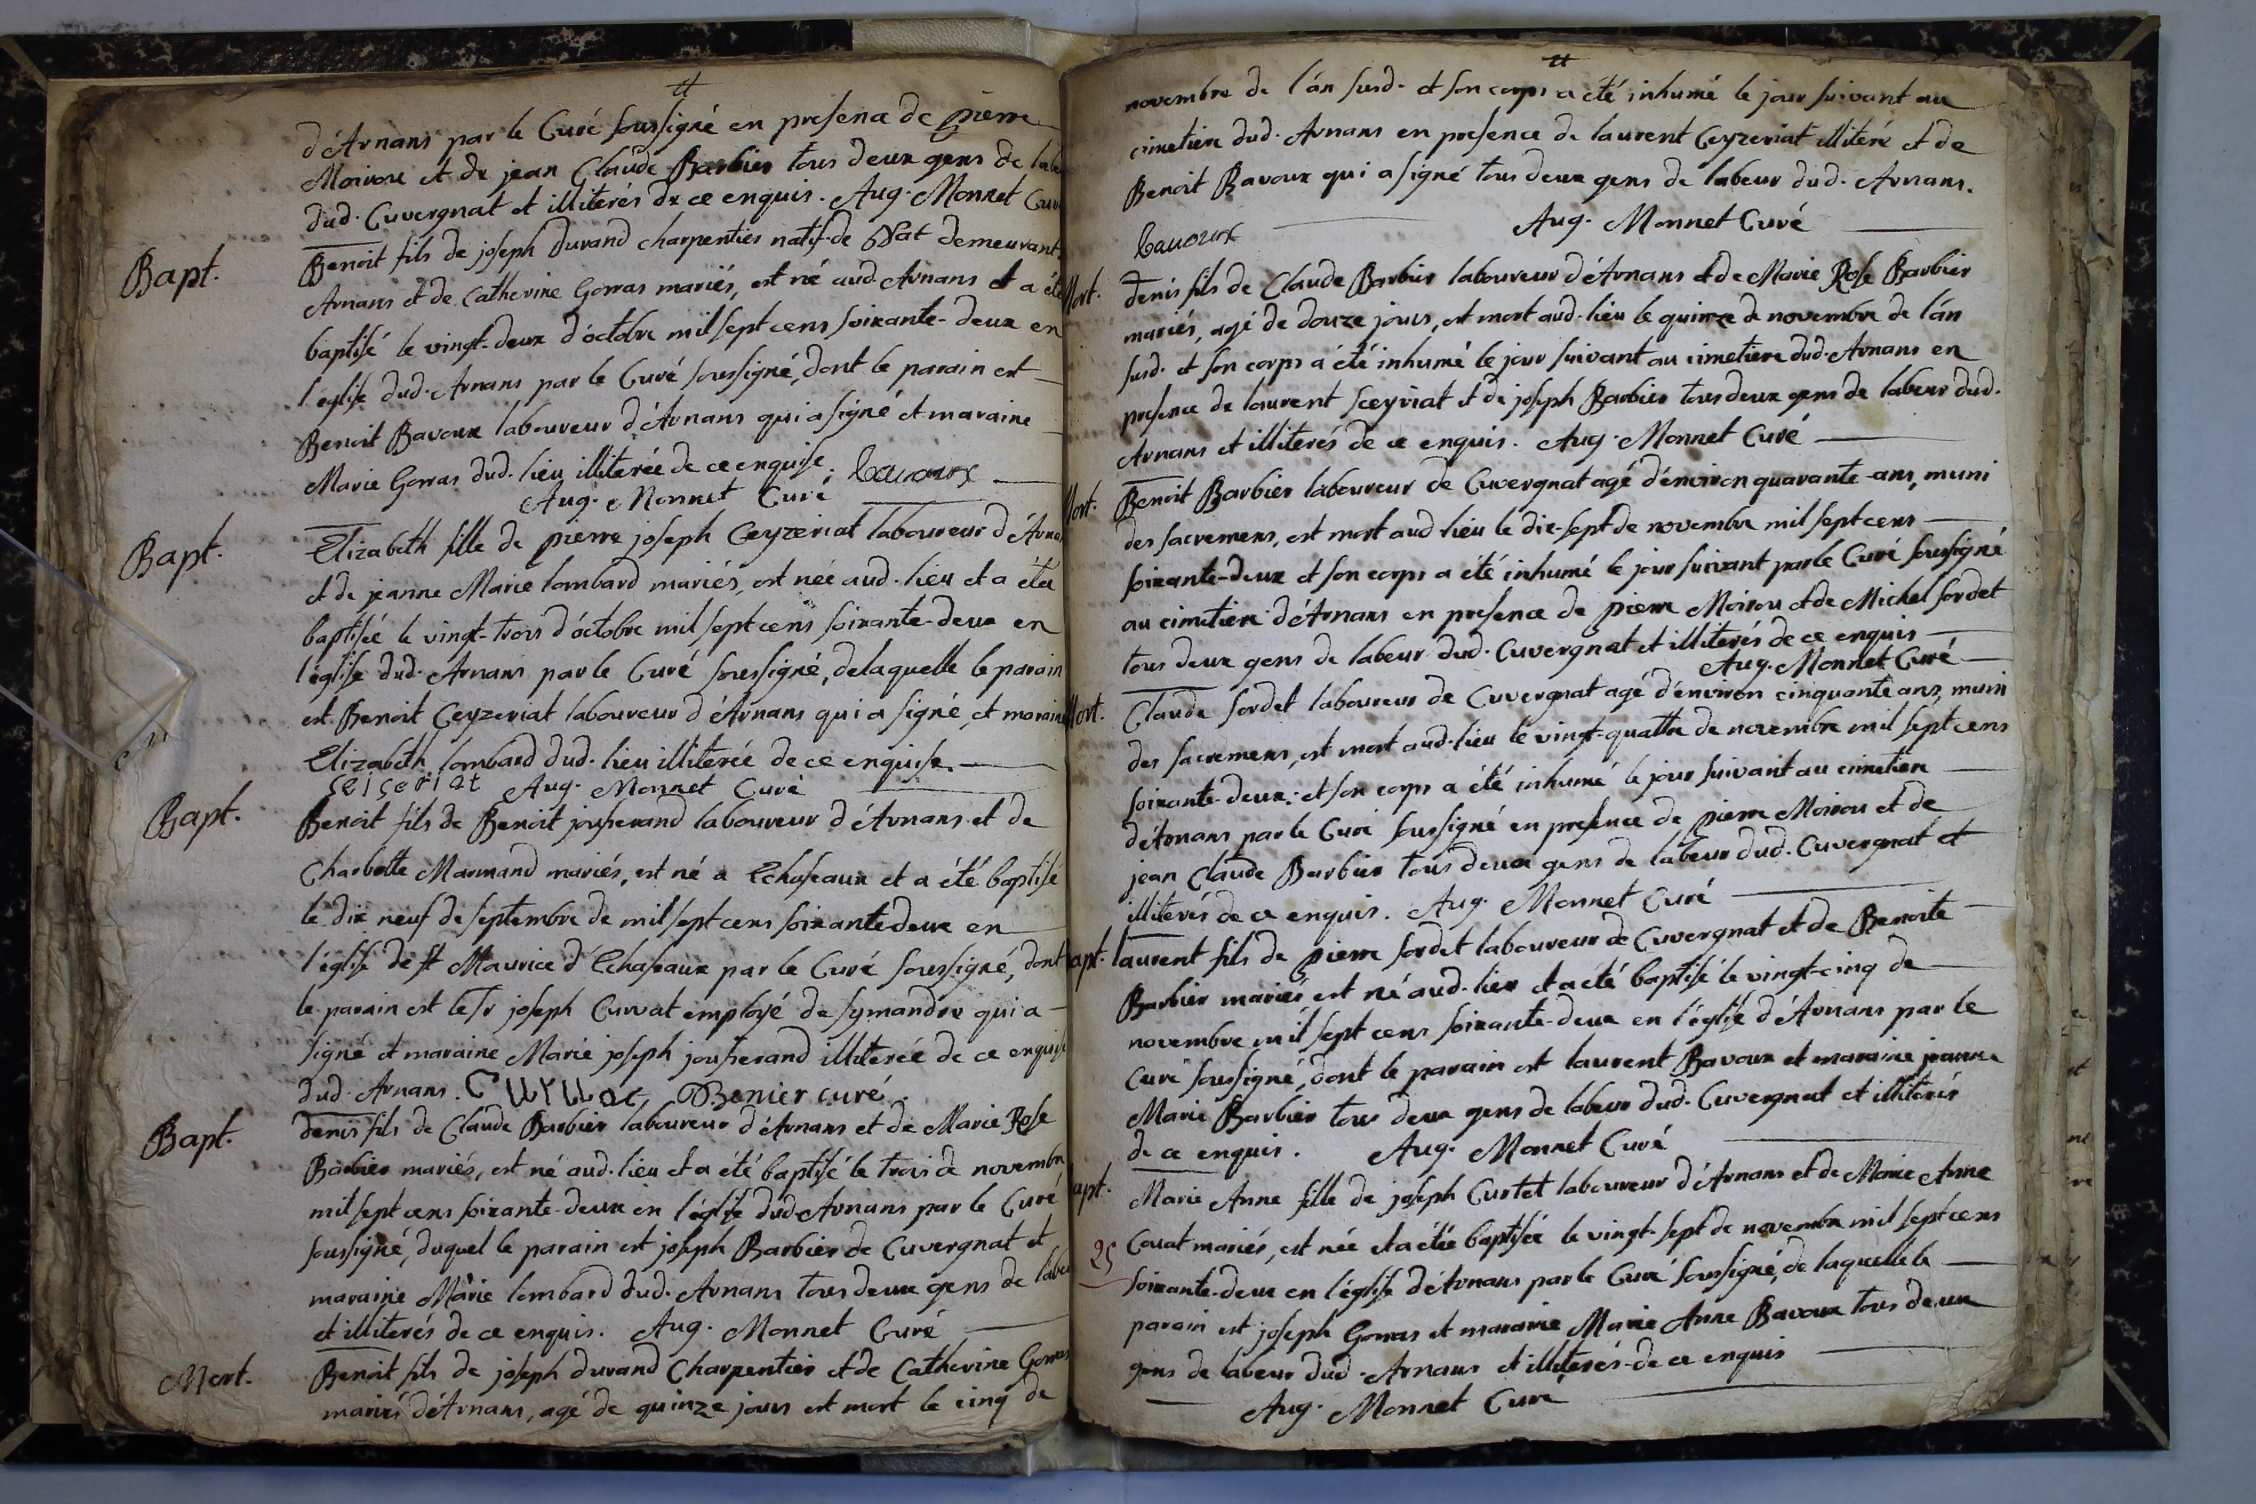 tt
d'Arnans par le Curé soussigné en presence de pierre
Moirou et de jean Claude Barbier tous deux gens de labe
dud. Cuvergnat et illiterés de ce enquis. Aug. Monnet Curé
Bapt.
Benoit fils de joseph durand charpentier natif de demeurant
Arnans et de Catherine Gorras mariés, est né aud. Arnans et a été
baptisé le vingt-deux d'octobre mil sept cens soixante-deux en
l'eglise dud. Arnans par le Curé soussigné, dont le parain est
Benoit Bavoux laboureur d'Arnans qui a signé et maraine
Marie Gorras dud. lieu illiterée de ce enquise. bauoux
Aug. Monnet Curé
Bapt.
Elizabeth fille de pierre joseph Ceyzeriat laboureur d'Arnan
et de jeanne Marie lombard mariés, est née aud. lieu et a étée
baptisée le vingt-trois d'octobre mil sept cens soixante-deux en
l'église dud. Arnans par le Curé soussigné, de laquelle le parain
est Benoit Ceyzeriat laboureur d'Arnans qui a signé, et maraine
Elizabeth lombard dud. lieu illiterée de ce enquise.
seiseriat Aug. Monnet Curé
Bapt.
Benoit fils de Benoit jousserand laboureur d'Arnans et de
Charlotte Marmand mariés, est né a Echaseaux et a été baptisé
le dix neuf de septembre de mil sept cens soixante deux en
l'église de st Maurice d'Echaseaux par le Curé soussigné, dont
le parain est le sr joseph Curvat employé de symandre qui a
signé et maraine Marie joseph jousserand illiterée de ce enquise
dud. Arnans. Curuat, Benier curé.
Bapt.
denis fils de Claude Barbier laboureur d'Arnans et de Marie Rose
Barbier mariés, est né aud. lieu et a été baptisé le trois de novembre
mil sept cens soixante-deux en l'église dud. Arnans par le Curé
soussigné, duquel le parain est joseph Barbier de Cuvergnat et
maraine Marie lombard dud. Arnans tous deux gens de labeu
et illiterés de ce enquis. Aug. Monnet Curé
Mort.
Benoit fils de joseph durand Charpentier et de Catherine Gorras
mariés d'Arnans, agé de quinze jours est mort le cinq de
tt
novembre de l'an susd. et son corps a été inhumé le jour suivant au
cimetiere dud. Arnans en presence de laurent Ceyzeriat illiteré et de
Benoit Bavoux qui a signé tous deux gens de labeur dud. Arnans.
Aug. Monnet Curé
bauoux
Mort.
denis fils de Claude Barbier laboureur d'Arnans et de Marie Rose Barbier
mariés, agé de douze jours, est mort aud. lieu le quinze de novembre de l'an
susd. et son corps a été inhumé le jour suivant au cimetiere dud. Arnans en
presence de laurent Sceyriat et de joseph Barbier tous deux gens de labeur dud.
Arnans et illiterés de ce enquis. Aug. Monnet Curé
Mort.
Benoit Barbier laboureur de Cuvergnat agé d'environ quarante ans, muni
des sacremens, est mort aud. lieu le dix-sept de novembre mil sept cens
soixante-deux et son corps a été inhumé le jour suivant par le Curé soussigné
au cimetiere d'Arnans en presence de pierre Moirou et de Michel sordet
tous deux gens de labeur dud. Cuvergnat et illiterés de ce enquis
Aug. Monnet Curé
Mort.
Claude sordet laboureur de Cuvergnat agé d'environ cinquante ans, muni
des sacremens, est mort aud. lieu le vingt-quattre de novembre mil sept cens
soixante-deux; et son corps a été inhumé le jour suivant au cimetiere
d'Arnans par le Curé soussigné en presence de pierre Moirou et de
jean Claude Barbier tous deux gens de labeur dud. Cuvergnat et
illiterés de ce enquis. Aug. Monnet Curé
apt.
laurent fils de pierre sordet laboureur de Cuvergnat et de Benoite
Barbier mariés est né aud. lieu et a été baptisé le vingt-cinq de
novembre mil sept cens soixante-deux en l'église d'Arnans par le
Curé soussigné, dont le parain est laurent Bavoux et maraine jeanne
Marie Barbier tous deux gens de labeur dud. Cuvergnat et illiterés
de ce enquis. Aug. Monnet Curé
apt.
Marie Anne fille de joseph Curtet laboureur d'Arnans et de Marie Anne
Couat mariés, est née et a étée baptisée le vingt-sept de novembre mil sept cens
25
soixante-deux en l'église d'Arnans par le Curé soussigné, de laquelle le
parain est joseph Gorras et maraine Marie Anne Bavoux tous deux
gens de labeur dud. Arnans et illiterés de ce enquis
Aug. Monnet Curé